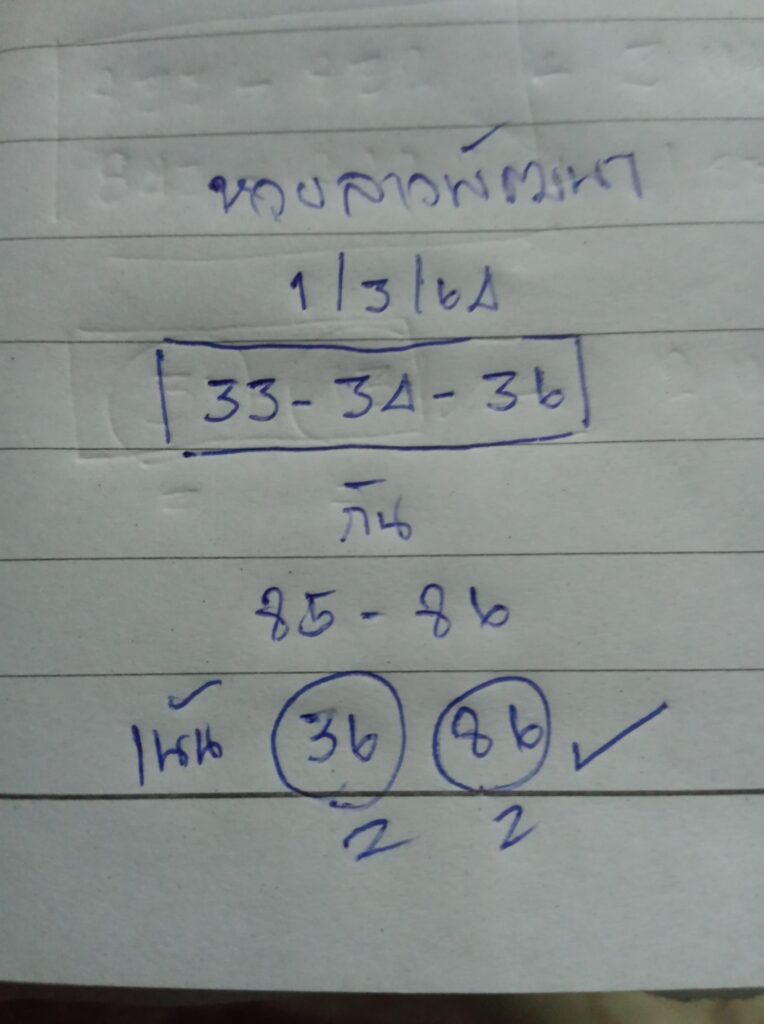 หวยลาวพัฒนา
1/3/64
33-34-36
กัน
85-86
เน้น 36 86
2 2